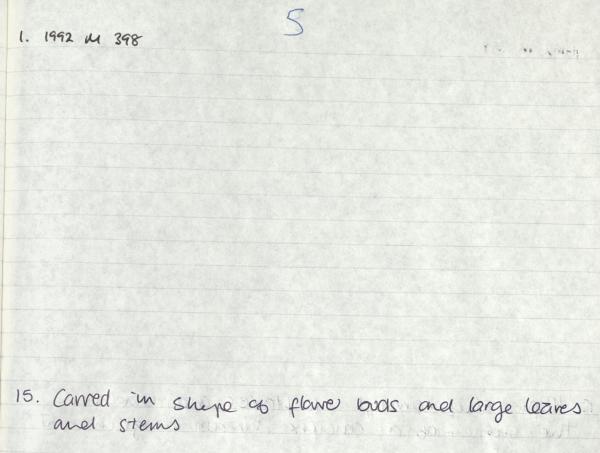 5
1. 1992 M 398
15. Carved in shape of flower buds and large leaves
and stems